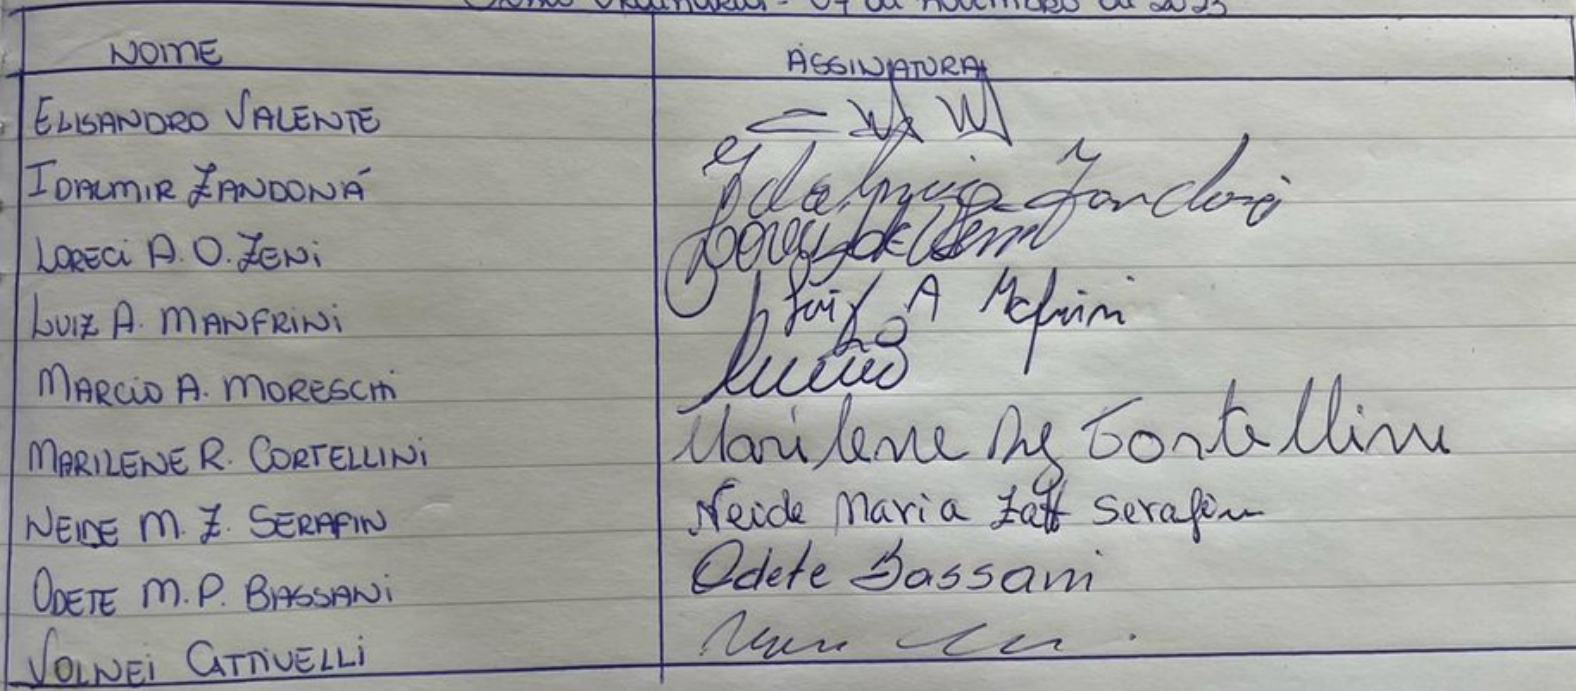 07 de novembro de 2023
NOME ASSINATURA
ELISANDRO VALENTE
IDALMIR ZANDONÁ Idalmir Zandoná
LORECI A. O. ZENI
LUIZ A. MANFRINI Luiz A
MARCIO A. MORESCHI
MARILENE R. CORTELLINI Marilene Cortellini
NEIDE M. Z. SERAFIN Neide Maria Zatt Serafin
ODETE M. P. BASSANI Odete Bassani
VOLNEI CATTIVELLI